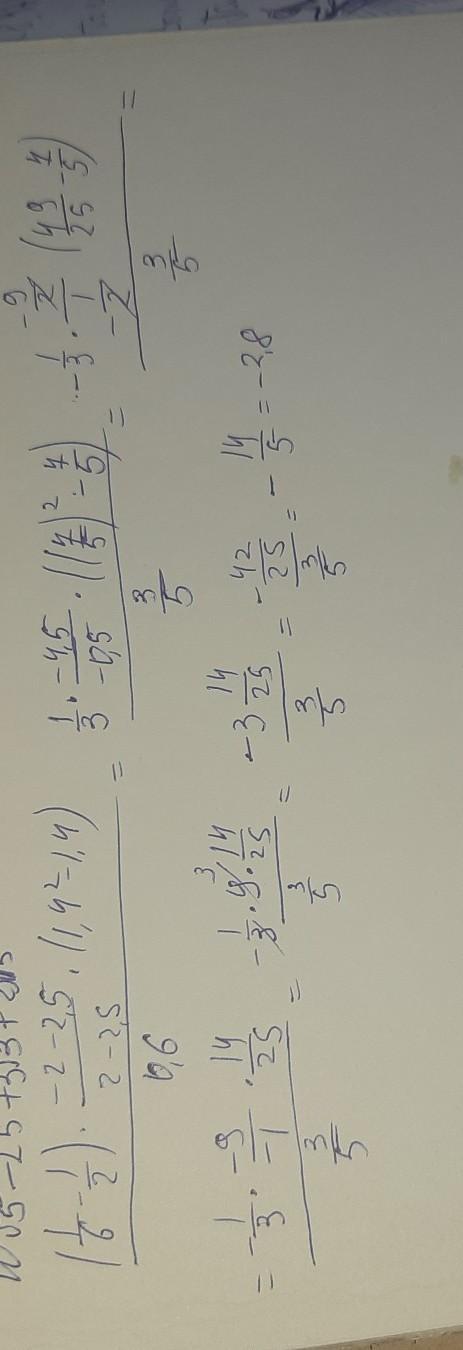 (1/6 - 1/2) · (-2-2,5)/(2-2,5) · (1,4² - 1,4) / 0,6 = 1/3 · (-4,5)/(-0,5) · ((7/5)² - 7/5) / (3/5) = -1/3 · (-9/2)/(-1/2) (49/25 - 7/5) / (3/5) =
= -1/3 · (-9)/(-1) · 14/25 / (3/5) = -1/3 · 9 3 · 14/25 / (3/5) = -3 14/25 / (3/5) = -42/25 / (3/5) = -14/5 = -2,8